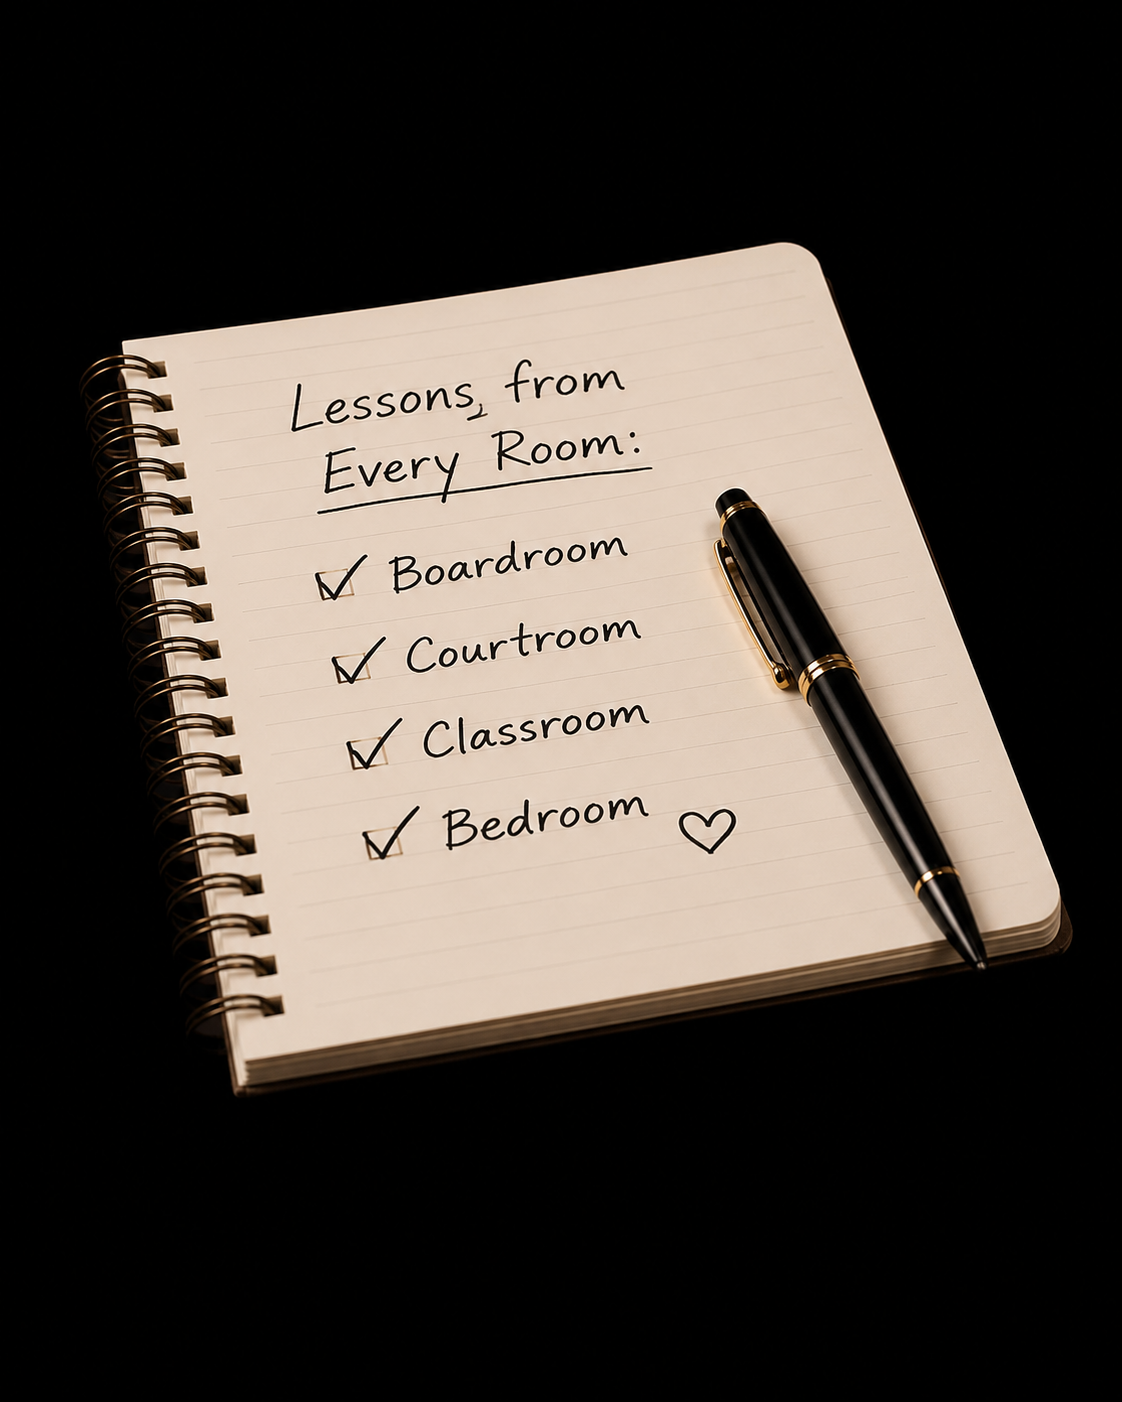 Lessons, from
Every Room:
Boardroom
Courtroom
Classroom
Bedroom